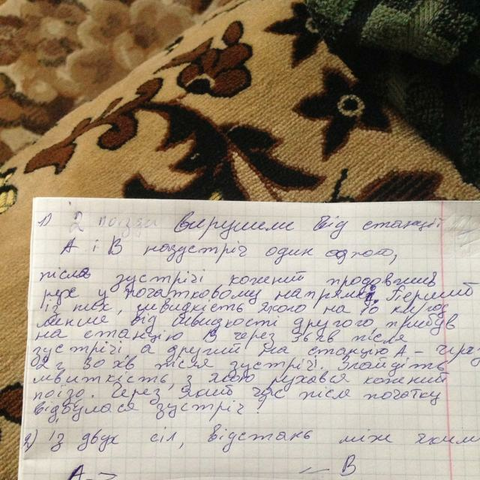 1) 2 поїзди вирушили від станції
А і В назустріч один одному,
після зустрічі кожний продовжив
рух у початковому напрямку. Перший
із них, швидкість якого на 10 км/год
менше від швидкості другого, прибув
на станцію В через 36хв після
зустрічі а другий на станцію А - через
30 хв після зустрічі. Знайдіть
швидкість, з якою рухався кожний
поїзд. Через який час після початку
відбулася зустріч?
2) Із двух сіл, відстань між якими
А В